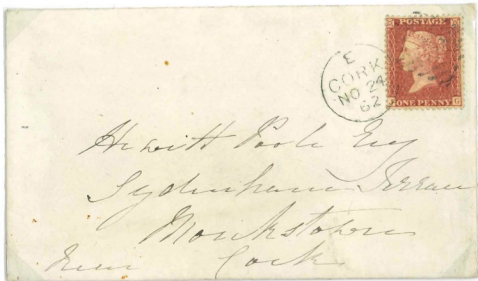 POSTAGE
ONE PENNY
E
CORK
NO 24
62
Hewitt Poole Esq
Sydenham Terrace
Monkstown
Cork